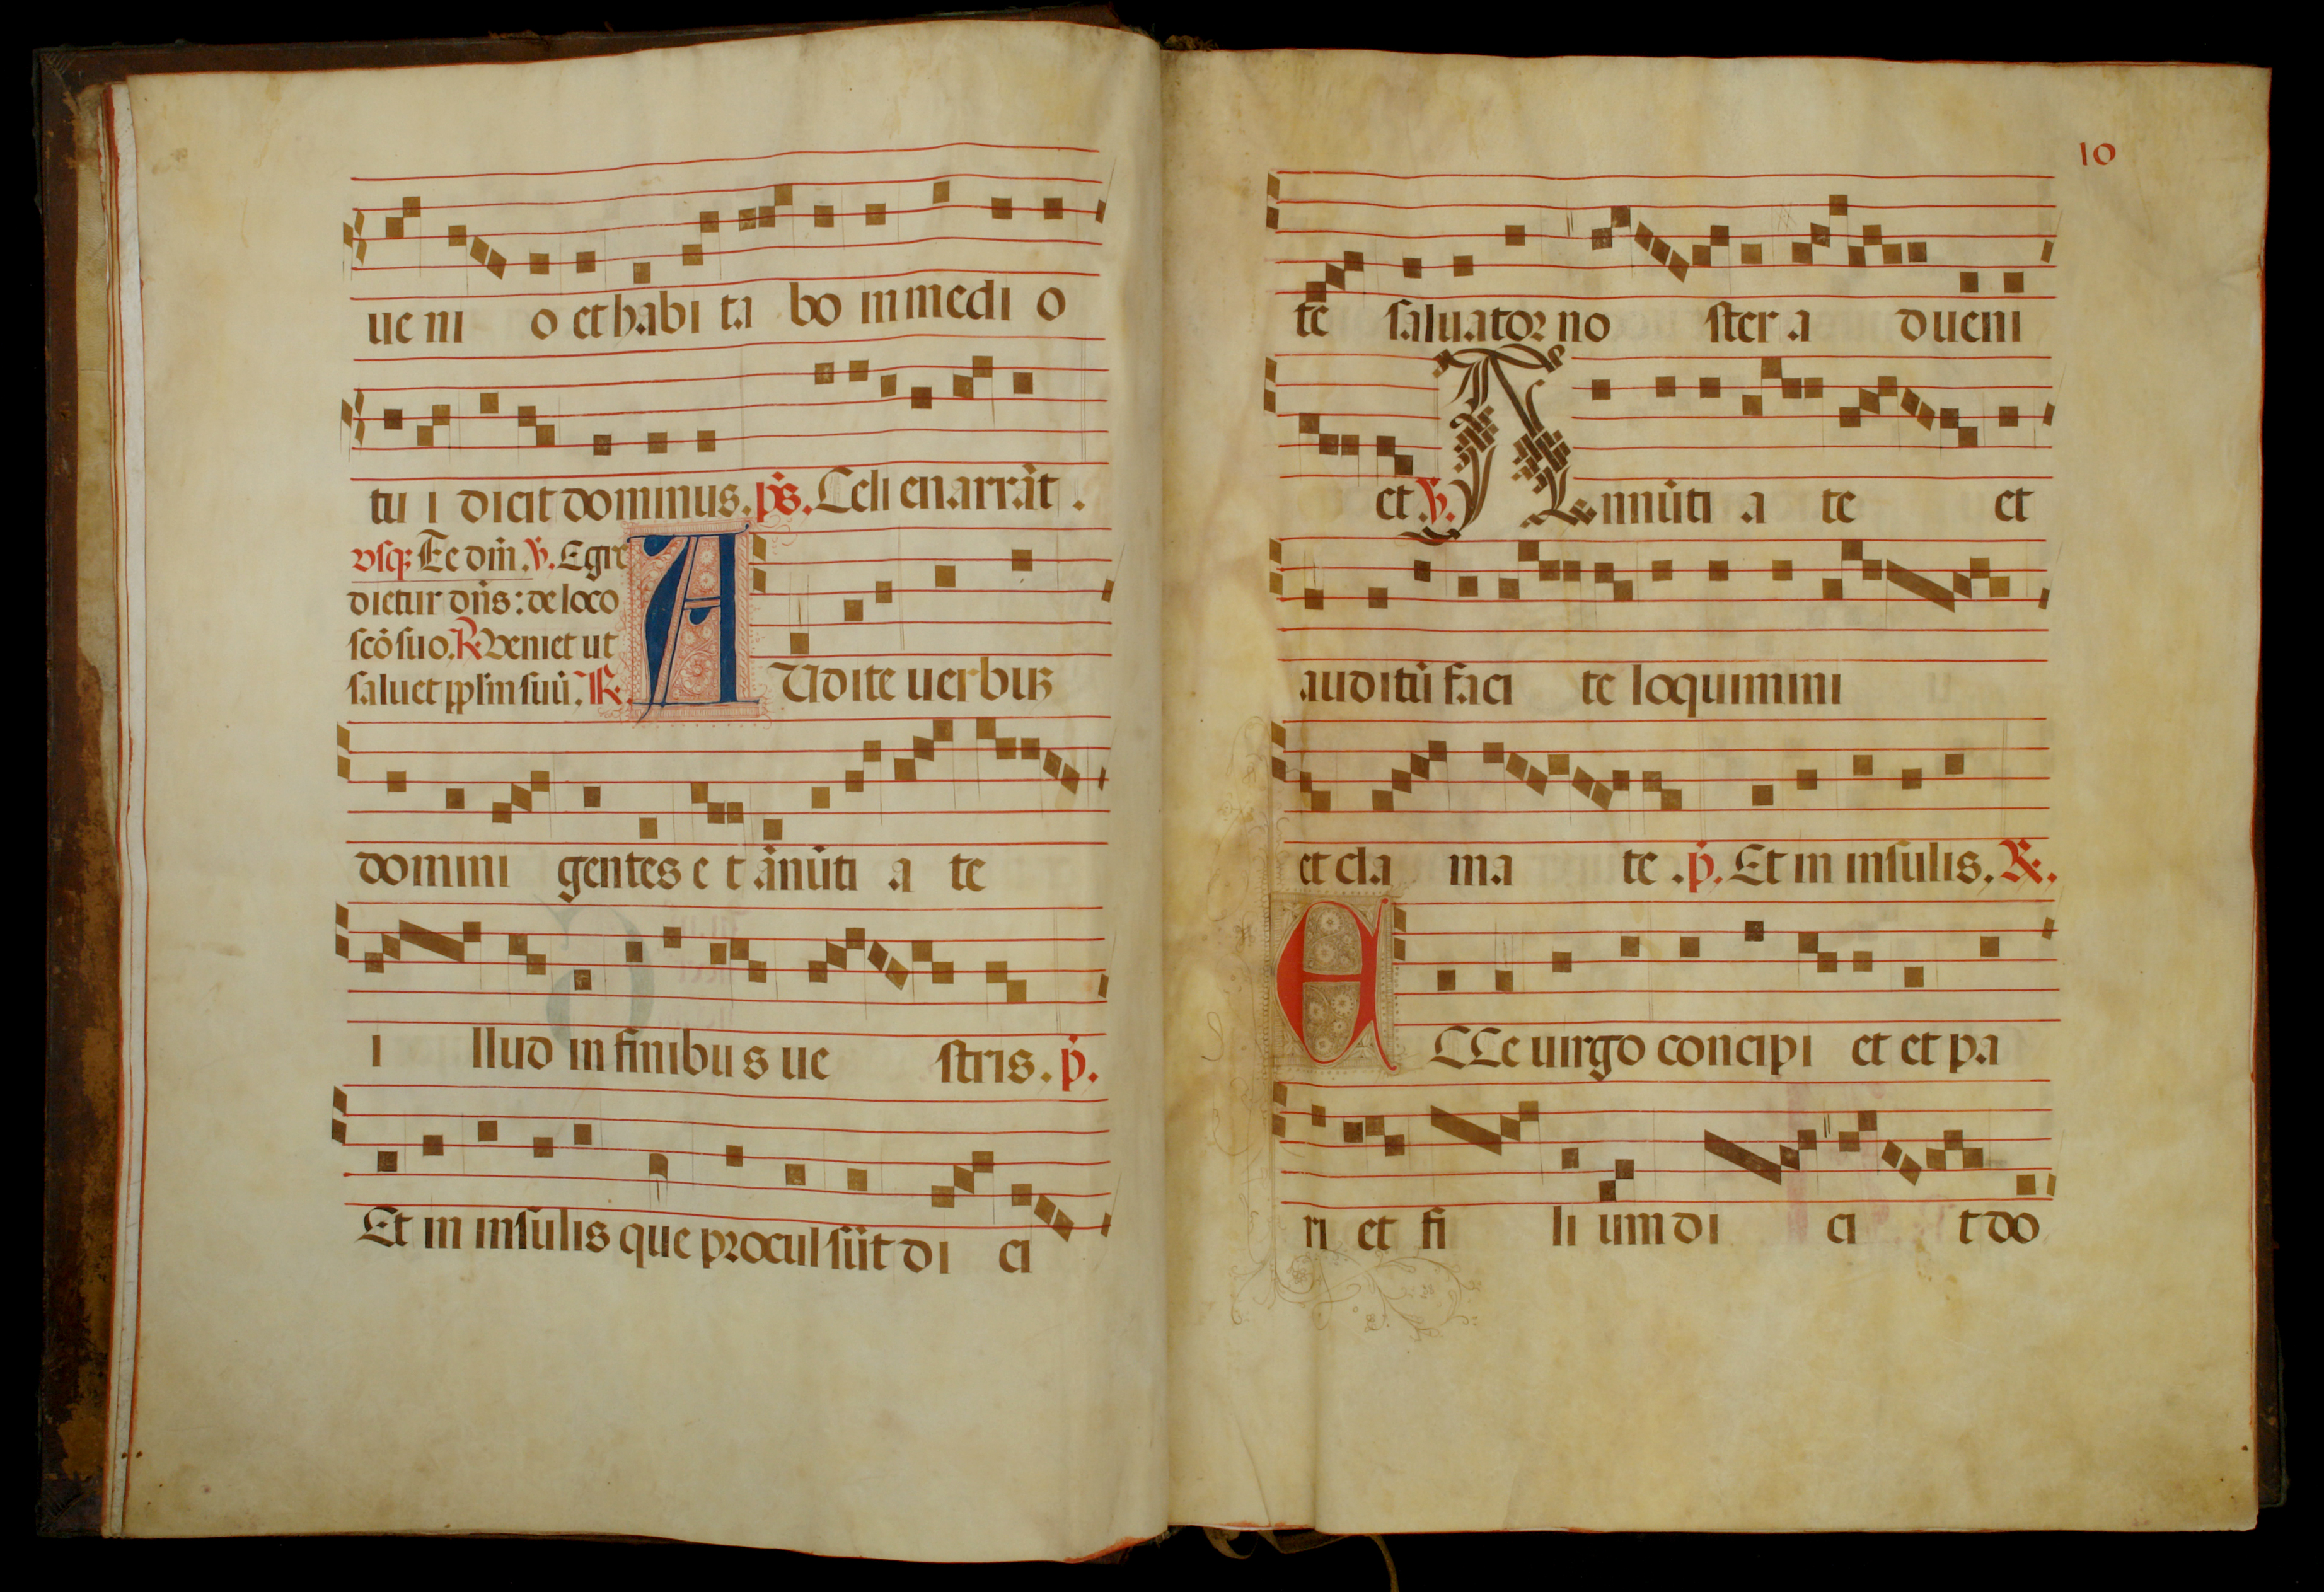 ue ni o et habi ta bo in medi o
tu i dicit dominus. ps. Celi enarrāt.
vsq; Ec dm̄. ℣. Egre
dietur dn̄s: de loco
scō suo. ℟. Veniet ut
saluet pplm̄ suū. ℟.
AUdite uerbuʒ
domini gentes e t ānūti a te
i llud in finibu s ue stris. p.
Et in insulis que procul sūt di ci
10
te saluator no ster a dueni
et ℣. Annūti a te et
auditū faci te loquimini
et cla ma te. p. Et in insulis. ℟.
ECCe uirgo concipi et et pa
ri et fi li um di ci t do